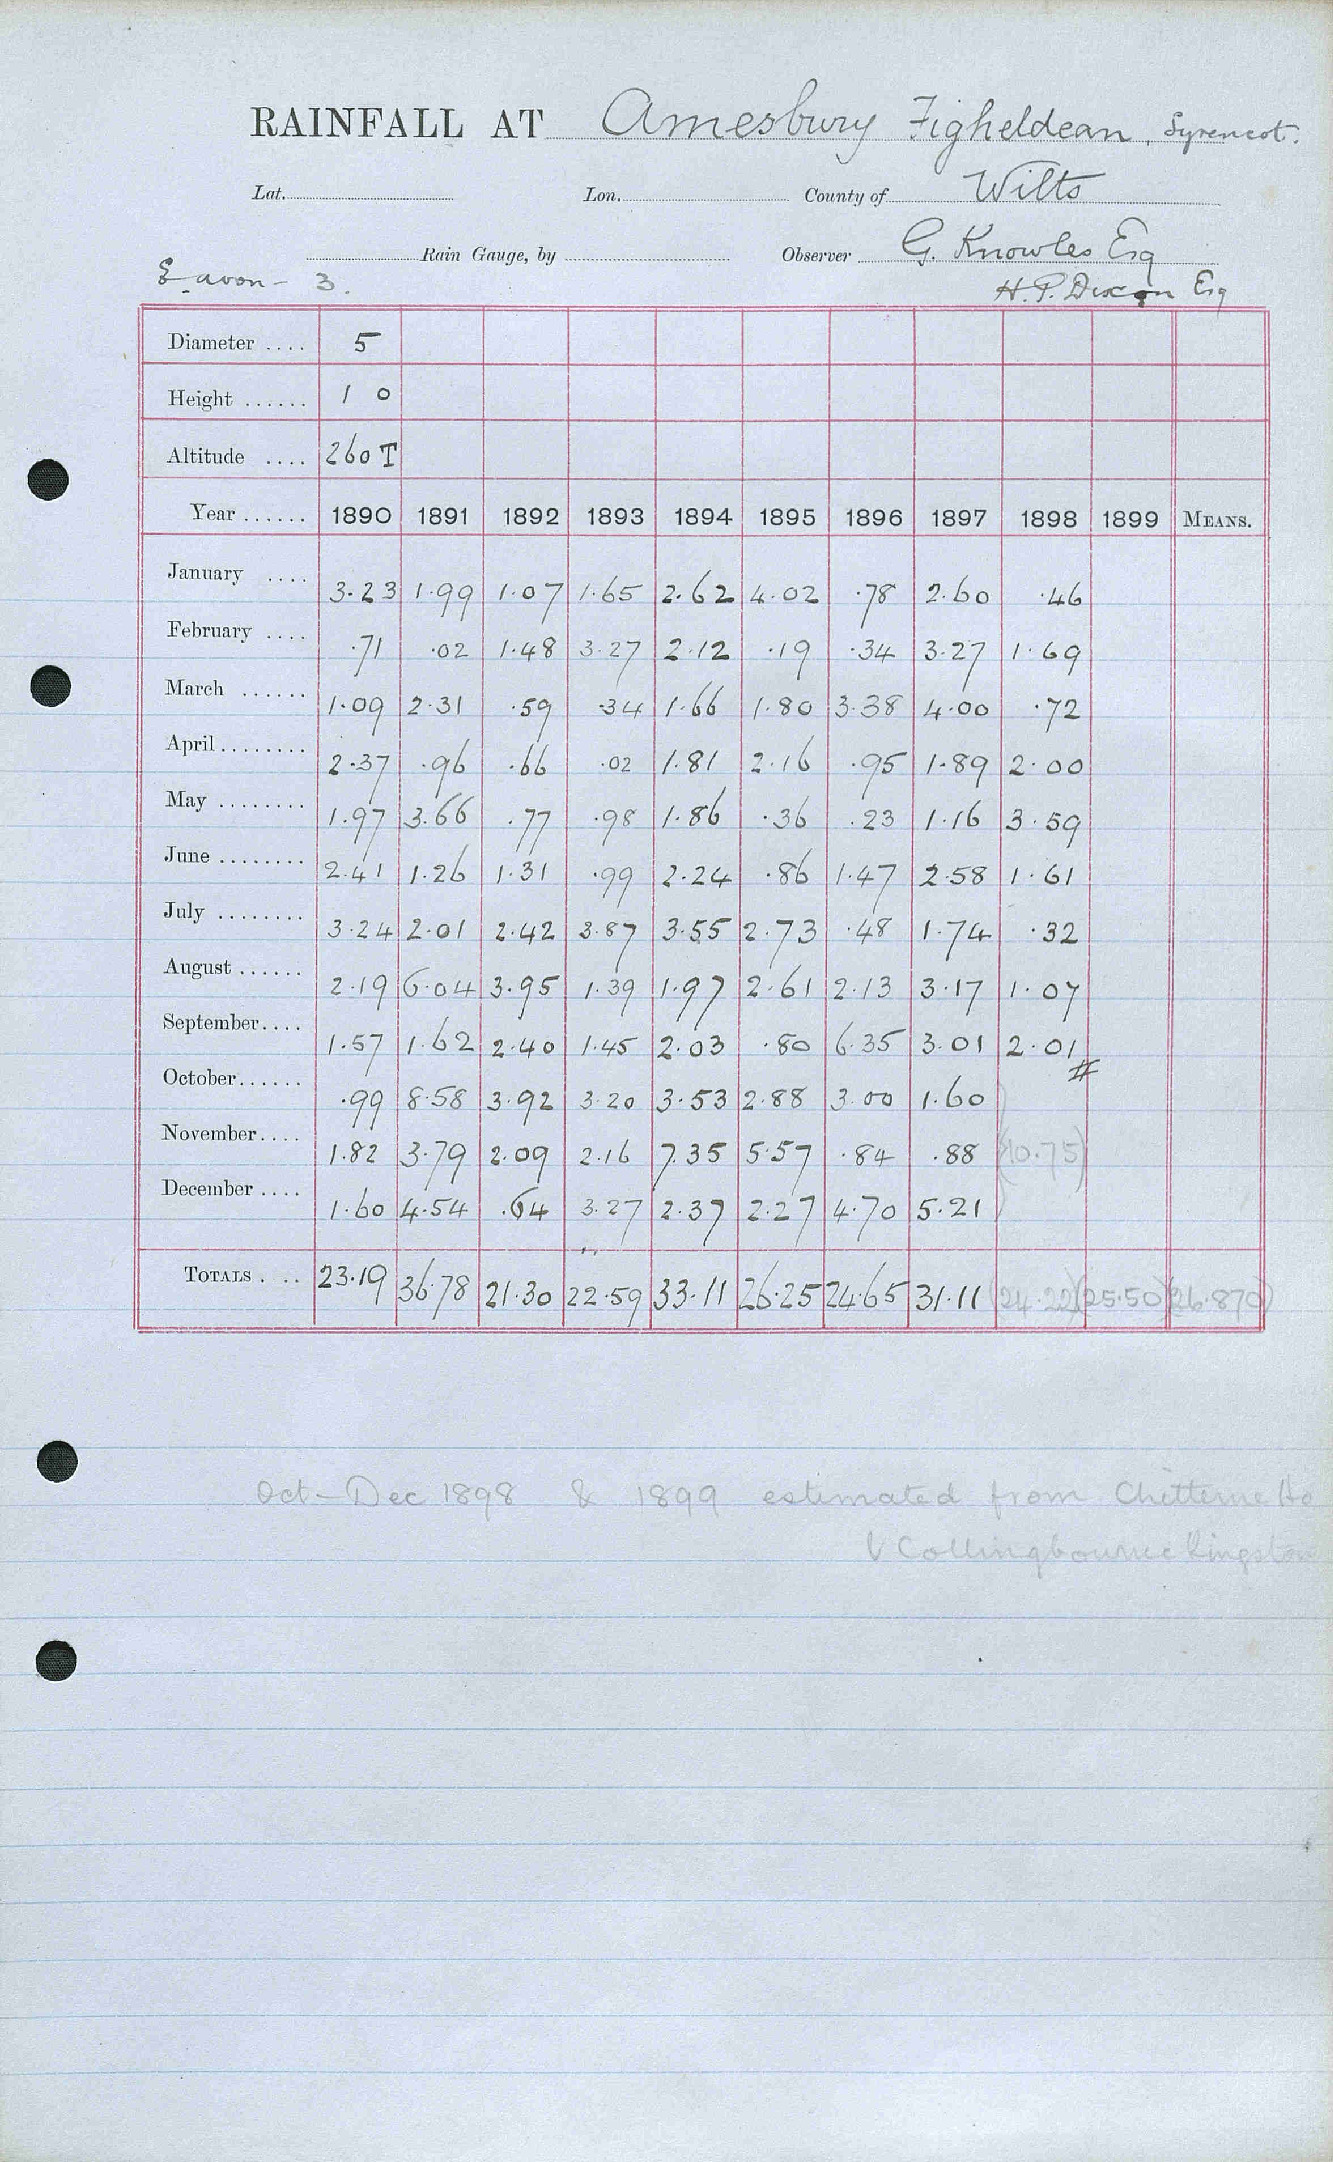 RAINFALL AT Amesbury Figheldean, Syrencot.
Lat. Lon. County of Wilts
Rain Gauge, by Observer G. Knowles Esq
E. avon - 3. H. P. Dixon Esq
Diameter .... 5
Height ...... 1 0
Altitude .... 260 T
Year ...... 1890 1891 1892 1893 1894 1895 1896 1897 1898 1899 MEANS.
January .... 3.23 1.99 1.07 1.65 2.62 4.02 .78 2.60 .46
February .... .71 .02 1.48 3.27 2.12 .19 .34 3.27 1.69
March ...... 1.09 2.31 .59 .34 1.66 1.80 3.38 4.00 .72
April ........ 2.37 .96 .66 .02 1.81 2.16 .95 1.89 2.00
May ........ 1.97 3.66 .77 .98 1.86 .36 .23 1.16 3.59
June ........ 2.41 1.26 1.31 .99 2.24 .86 1.47 2.58 1.61
July ........ 3.24 2.01 2.42 3.87 3.55 2.73 .48 1.74 .32
August ...... 2.19 6.04 3.95 1.39 1.97 2.61 2.13 3.17 1.07
September.... 1.57 1.62 2.40 1.45 2.03 .80 6.35 3.01 2.01 #
October...... .99 8.58 3.92 3.20 3.53 2.88 3.00 1.60
November.... 1.82 3.79 2.09 2.16 7.35 5.57 .84 .88 (10.75)
December .... 1.60 4.54 .64 3.27 2.37 2.27 4.70 5.21
TOTALS . .. 23.19 36.78 21.30 22.59 33.11 26.25 24.65 31.11 (24.22) (25.50) (26.870)
Oct - Dec 1898 & 1899 estimated from Chitterne Ho
& Collingbourne Kingston